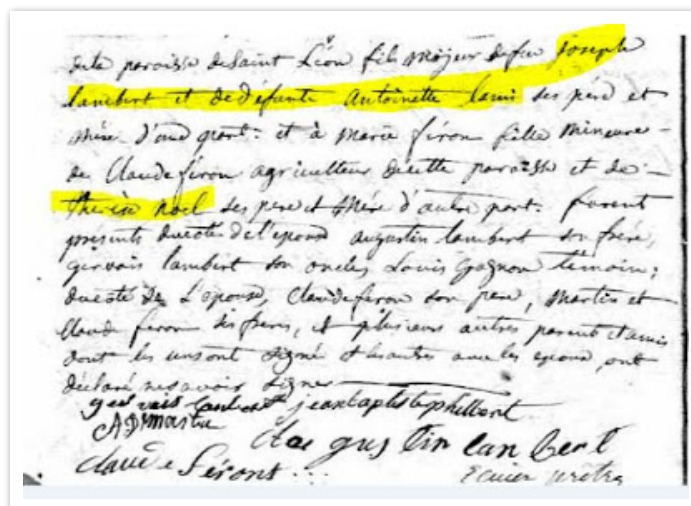 dite paroisse de Saint Léon fils majeur de feu Joseph
lambert et de défunte Antoinette lanis ses pére et
mére d'une part: et à marie feron fille mineure
de Claude feron agriculteur de cette paroisse et de
therèse noel ses pere et mére d'autre part. furent
présents du coté de l'epoux augustin lambert son frére,
gervais lambert son oncle, Louis Gagnon temoin;
du coté de L'epouse, Claude feron son pere, Martin et
Claude feron ses freres, et plusieurs autres parent et amis
dont les uns ont signé et les autres avec les epoux, ont
déclaré ne savoir signer
gervais lambert jean baptiste philbert
augustin lanbert
claude ferons
prêtre